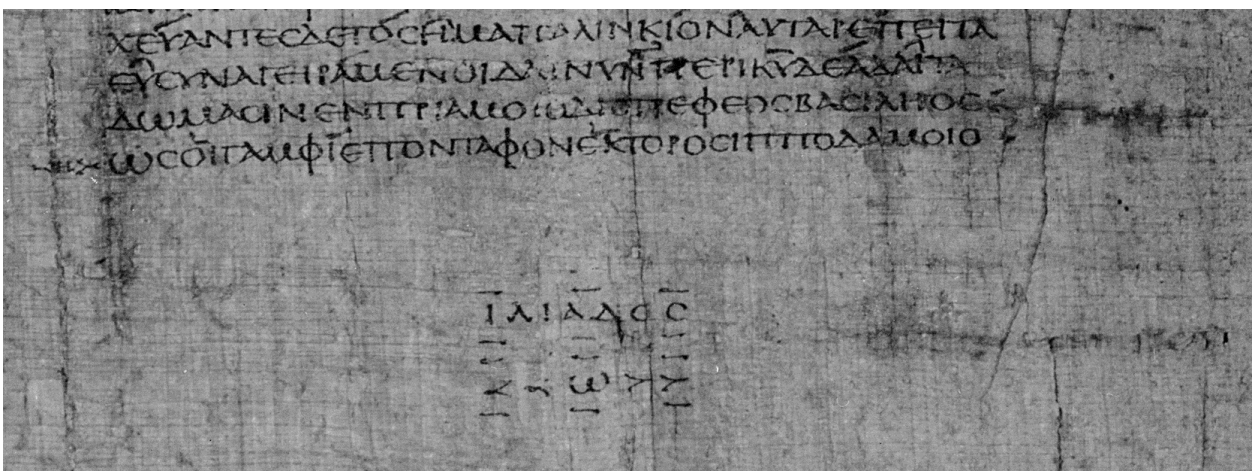 ΧΕΥΑΝΤΕϹΔΕΤΟϹΗΜΑΠΑΛΙΝΚΙΟΝΑΥΤΑΡΕΠΕΙΤΑ
ΕΥϹΥΝΑΓΕΙΡΑΜΕΝΟΙΔΑΙΝΥΝΤΕΡΙΚΥΔΕΑΔΑΙΤΑ
ΔΩΜΑϹΙΝΕΝΠΡΙΑΜΟΙΟΔΙΟΤΡΕΦΕΟϹΒΑϹΙΛΗΟϹ
ΩϹΟΙΓΑΜΦΙΕΠΟΝΤΑΦΟΝΕΚΤΟΡΟϹΙΠΠΟΔΑΜΟΙΟ
ΙΛΙΑΔΟϹ
Ω